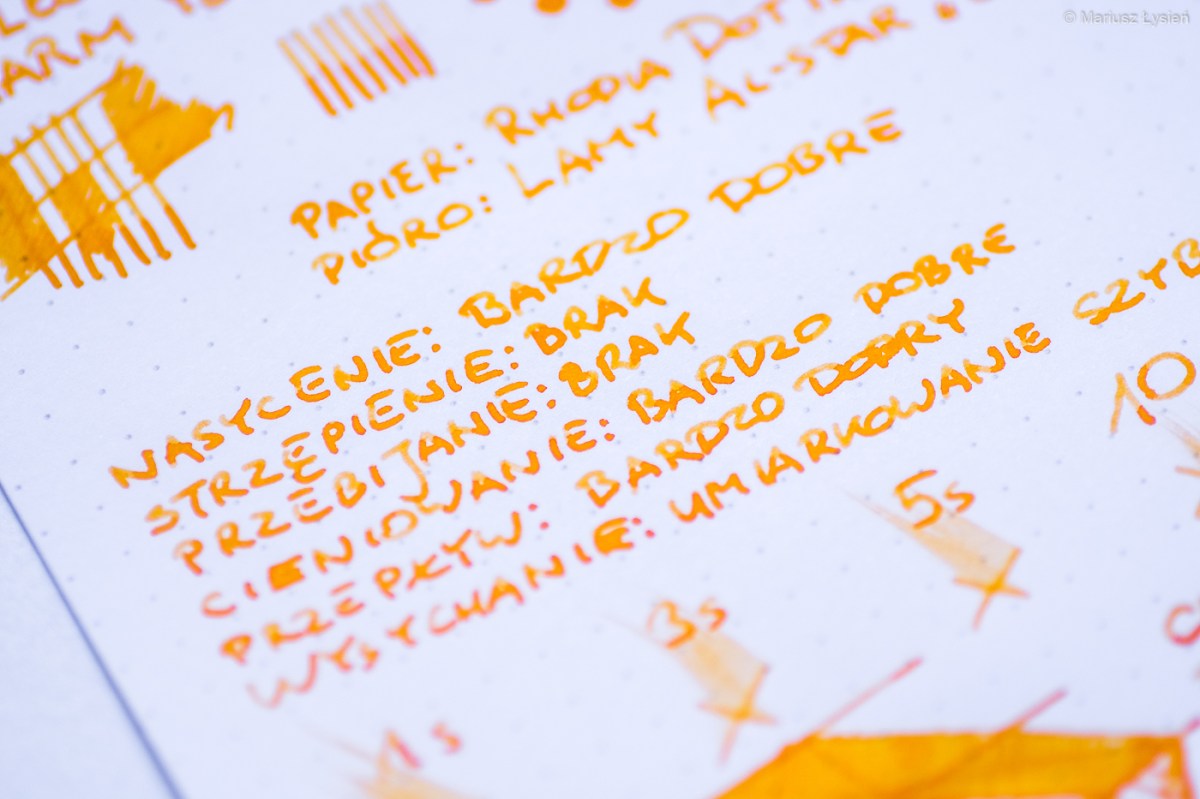 © Mariusz Łysień
PAPIER: RHODIA
PIÓRO: LAMY AL-STAR
NASYCENIE: BARDZO DOBRE
STRZĘPIENIE: BRAK
PRZEBIJANIE: BRAK
CIENIOWANIE: BARDZO DOBRE
PRZEPŁYW: BARDZO DOBRY
WYSYCHANIE: UMIARKOWANIE SZYB
10
5s
3s
1s